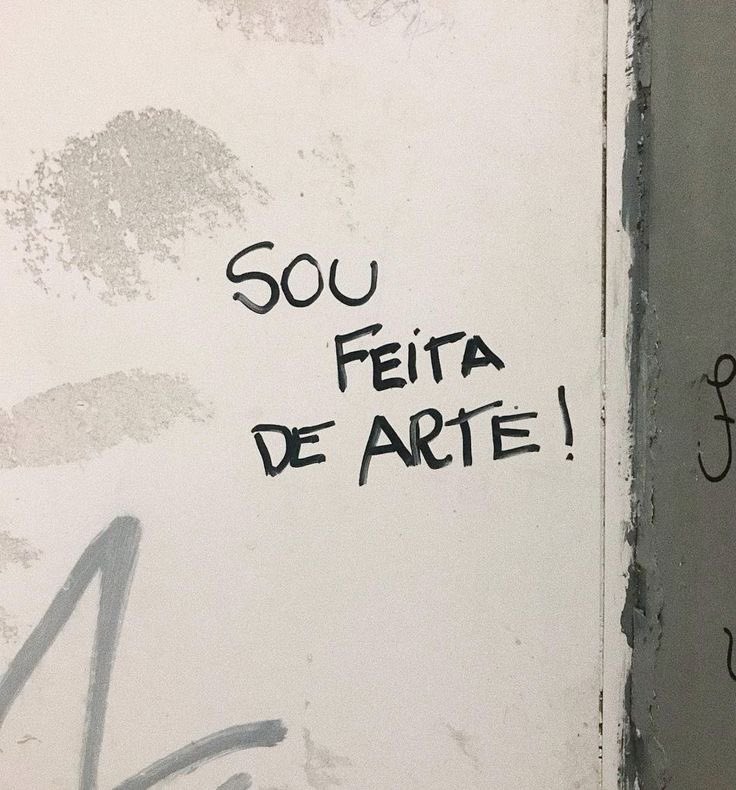 SOU
FEITA
DE ARTE!